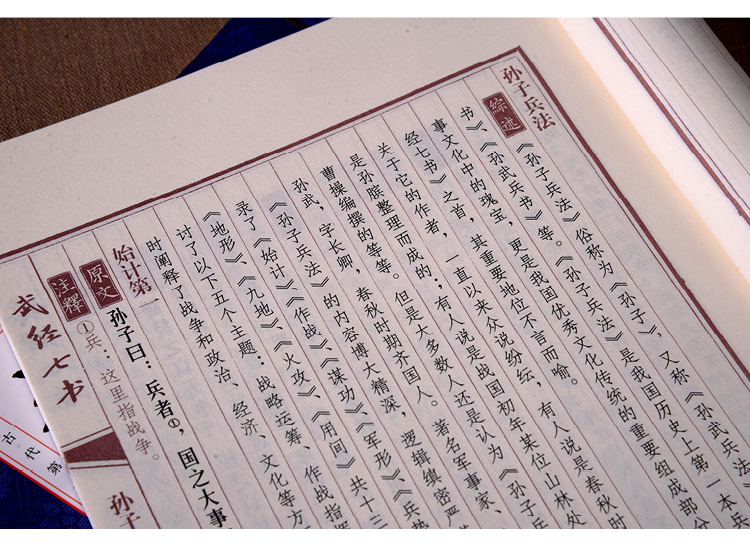 孙子兵法
綜述
《孙子兵法》俗称为《孙子》，又称《孙武兵法》
书》、《孙武兵书》等。《孙子兵法》是我国历史上第一本兵
事文化中的瑰宝，更是我国优秀文化传统的重要组成部分
经七书》之首，其重要地位不言而喻。
关于它的作者，一直以来众说纷纭，有人说是春秋时
是孙膑整理而成的；有人说是战国初年某位山林处
曹操编撰的等等。但是大多数人还是认为《孙子兵
孙武，字长卿，春秋时期齐国人。著名军事家、
《孙子兵法》的内容博大精深，逻辑缜密严
录了《始计》、《作战》、《谋攻》、《军形》、《兵
《地形》、《九地》、《火攻》、《用间》共十三
讨了以下五个主题：战略运筹、作战指挥
时阐释了战争和政治、经济、文化等方
始计第一
原文 孙子曰：兵者①，国之大事
注釋 ①兵：这里指战争。
武经七书
孙子
古代第